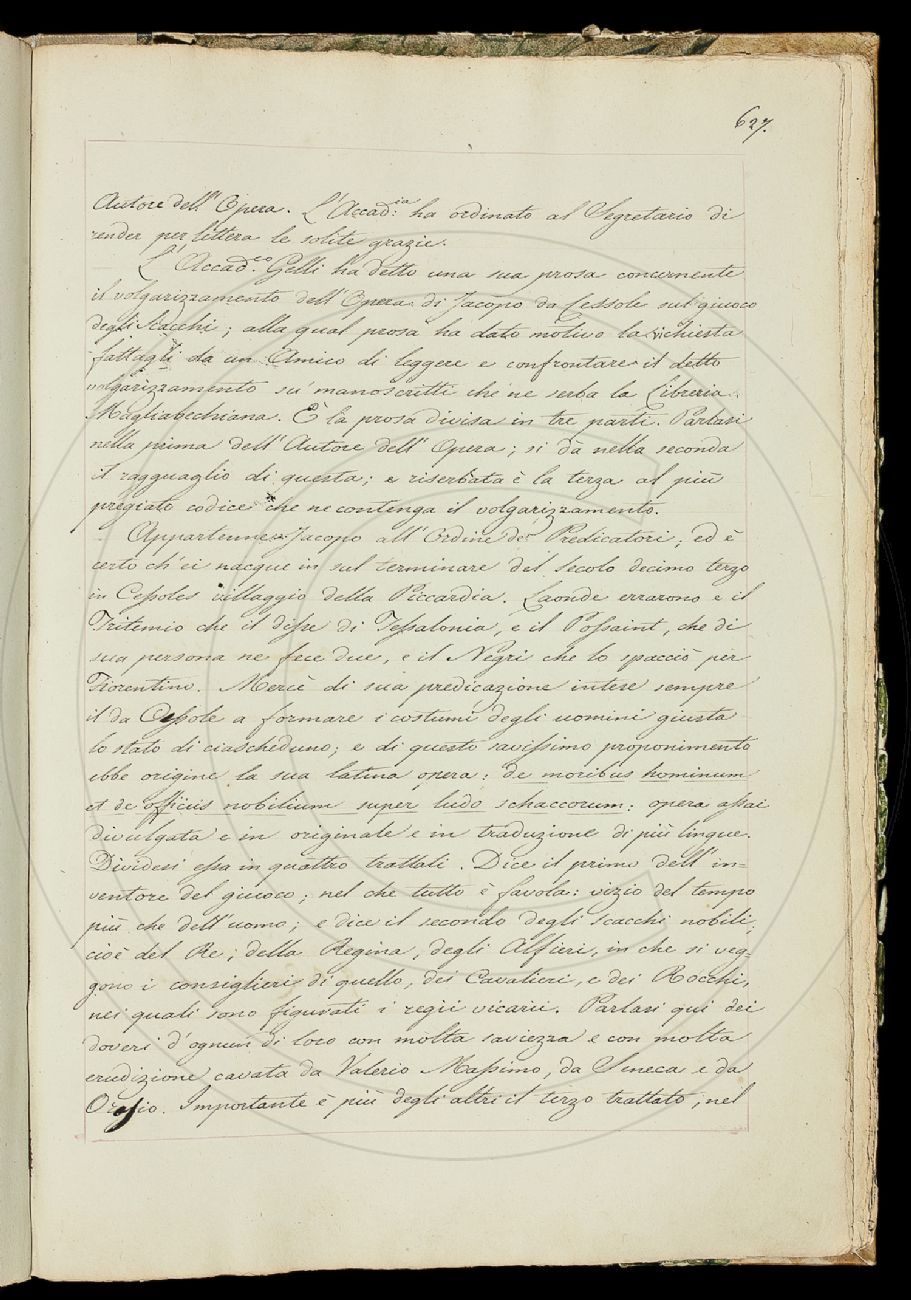 627.
Autore dell'Opera. L'Accad:ia ha ordinato al Segretario di
render per lettera le solite grazie.
L'Accad:co Gelli ha detto una sua prosa concernente
il volgarizzamento dell'Opera di Jacopo da Cessole sul giuoco
degli Scacchi; alla qual prosa ha dato motivo la richiesta
fattagli da un Amico di leggere e confrontare il detto
volgarizzamento su' manoscritti che ne serba la Libreria
Magliabechiana. È la prosa divisa in tre parti. Parlasi
nella prima dell'Autore dell'Opera; si dà nella seconda
il ragguaglio di questa; e riserbata è la terza al più
pregiato codice che ne contenga il volgarizzamento.
Appartenne Jacopo all'Ordine de' Predicatori; ed è
certo ch'ei nacque in sul terminare del secolo decimo terzo
in Cessoles villaggio della Piccardia. Laonde errarono e il
Tritemio che il disse di Tessalonia, e il Possaint, che di
sua persona ne fece due, e il Negri che lo spacciò per
Fiorentino. Mercè di sua predicazione intese sempre
il da Cessole a formare i costumi degli uomini giusta
lo stato di ciascheduno; e di questo savissimo proponimento
ebbe origine la sua latina opera: de moribus hominum
et de officiis nobilium super ludo schaccorum: opera assai
divulgata e in originale e in traduzione di più lingue.
Dividesi essa in quattro trattati. Dice il primo dell'in-
ventore del giuoco; nel che tutto è favola: vizio del tempo
più che dell'uomo; e dice il secondo degli scacchi nobili;
cioè del Re, della Regina, degli Alfieri, in che si veg-
gono i consiglieri di quello, dei Cavalieri, e dei Rocchi,
nei quali sono figurati i regii vicarii. Parlasi qui dei
doveri d'ognun di loro con molta saviezza e con molta
erudizione cavata da Valerio Massimo, da Seneca e da
Orazio. Importante è più degli altri il terzo trattato, nel